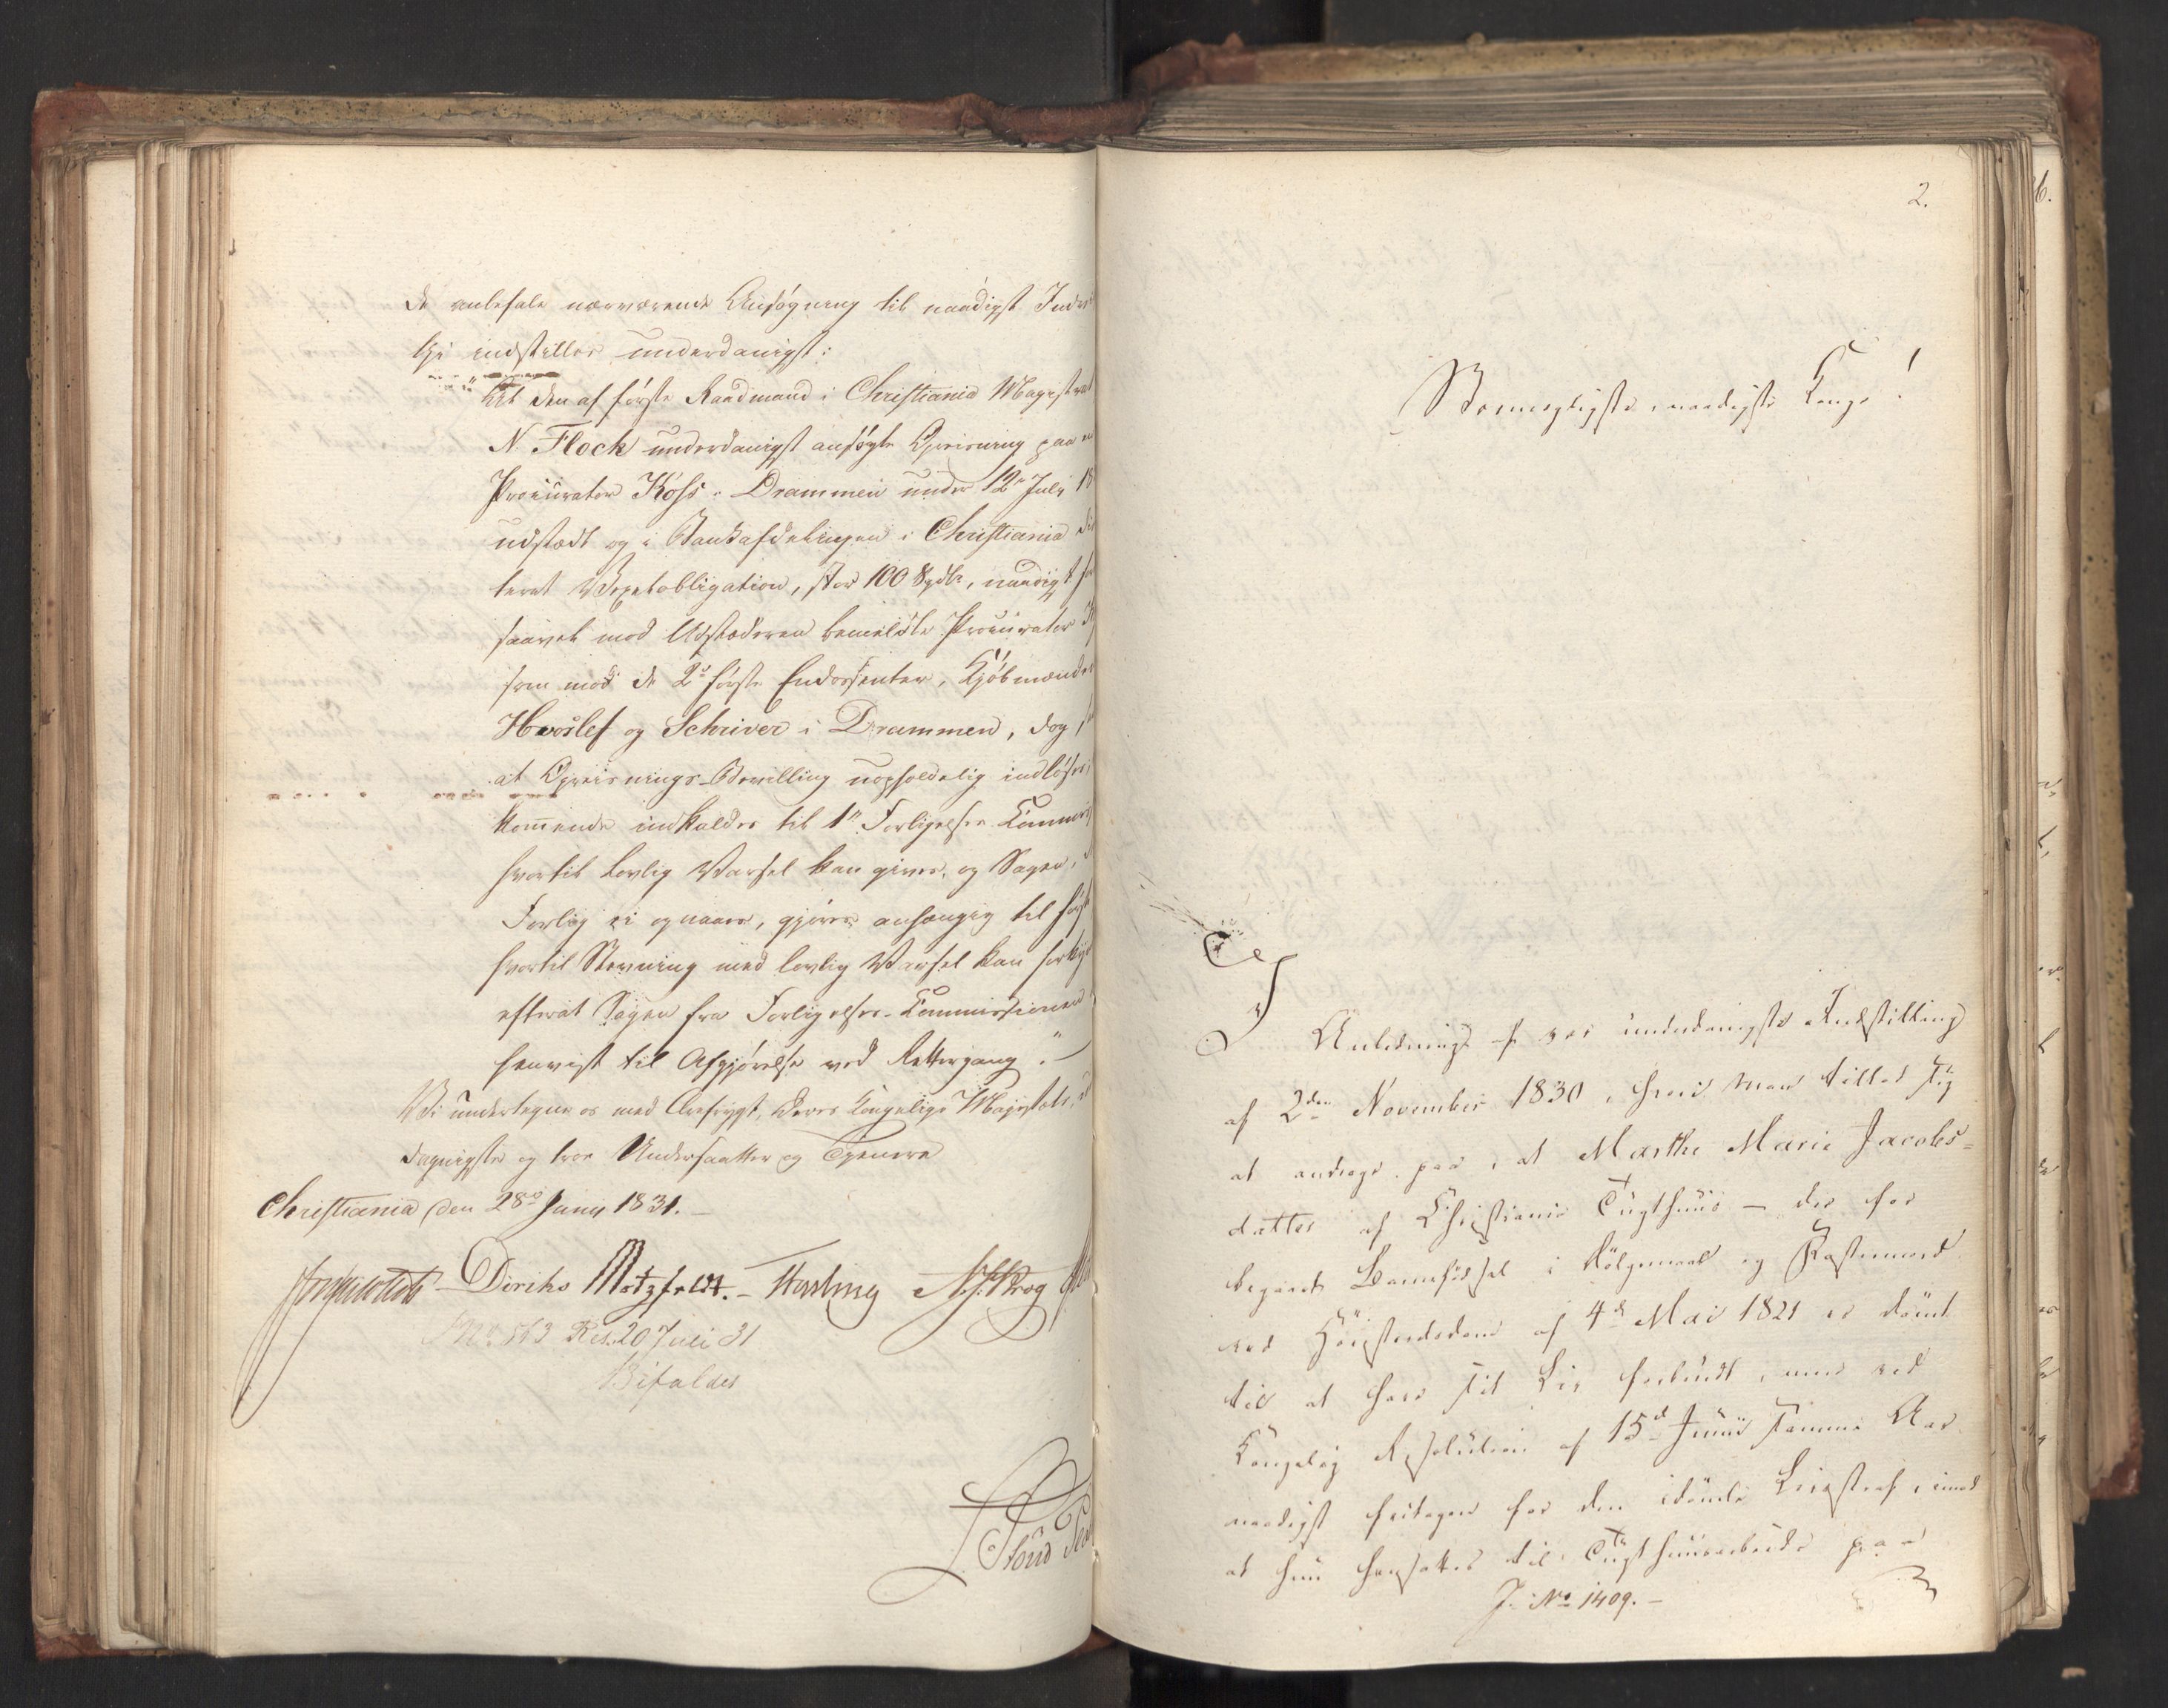 de anbefale nærværende Ansøgning til naadigst
indstilles underdanigst:
"At den af første Raadmand i Christiania Magistrat
N. Flock underdanigst ansøgte Opreisning paa en
Procurator Koss i Drammen under 12te July 18
udstædt og i Bankafdelingen i Christiania
teret Vexelobligation, stor 100 Spdlr, naadigst
saavel mod Udstæderen bemeldte Procurator K
som mod de 2de første Endossenter, Kjøbmændene
Hvoslef og Schriver i Drammen, dog
at Opreisnings-Bevilling uopholdelig indløses,
kommende indkaldes til 1te Forligelses Commis
hvortil lovlig Varsel kan gives, og Sagen,
Forlig ei opnaaes, gjøres anhængig til første
hvortil Stevning med lovlig Varsel kan
efterat Sagen fra Forligelses-Commissionen
henvist til Afgjørelse ved Rettergang."
Vi undertegne os med Ærefrygt, Deres Kongelige Majestæts,
danigste og troe Undersaatter og Tjenere
Christiania den 28de Juny 1831.
Diriks Motzfeldt. Krog
No 563 Res. 20 Juli 31
Bifaldes
2.
Stormægtigste, naadigste Konge!
I
Anledning af vor underdanigste Indstilling
af 2den November 1830, hvori man tillod sig
at andrage paa, at Marthe Marie Jacobs-
datter af Christiania Tugthuus – der for
begaaet Barnefødsel i Dølgsmaal og Fostermord
ved Høiesteretsdom af 4de Mai 1821 er dømt
til at have sit Liv forbrudt, men ved
Kongelig Resolution af 15de Junii samme Aar
naadigst fritagen for den idømte Livsstraf, imod
at hun hensattes til Tugthuusarbeide paa
J. No 1409.